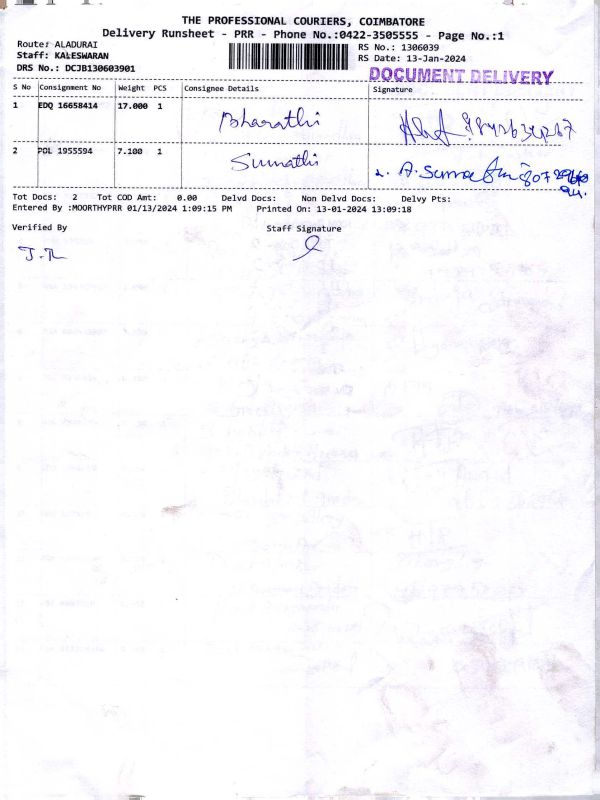 THE PROFESSIONAL COURIERS, COIMBATORE
Delivery Runsheet - PRR - Phone No.:0422-3505555 - Page No.:1
Route: ALADURAI
Staff: KALESWARAN
DRS No.: DCJB130603901
RS No.: 1306039
RS Date: 13-Jan-2024
DOCUMENT DELIVERY
S No Consignment No Weight PCS Consignee Details Signature
1 EDQ 16658414 17.000 1 Bharathi
2 POL 1955594 7.100 1 Sumathi 2. A. Suma
Tot Docs: 2 Tot COD Amt: 0.00 Delvd Docs: Non Delvd Docs: Delvy Pts:
Entered By :MOORTHYPRR 01/13/2024 1:09:15 PM Printed On: 13-01-2024 13:09:18
Verified By Staff Signature